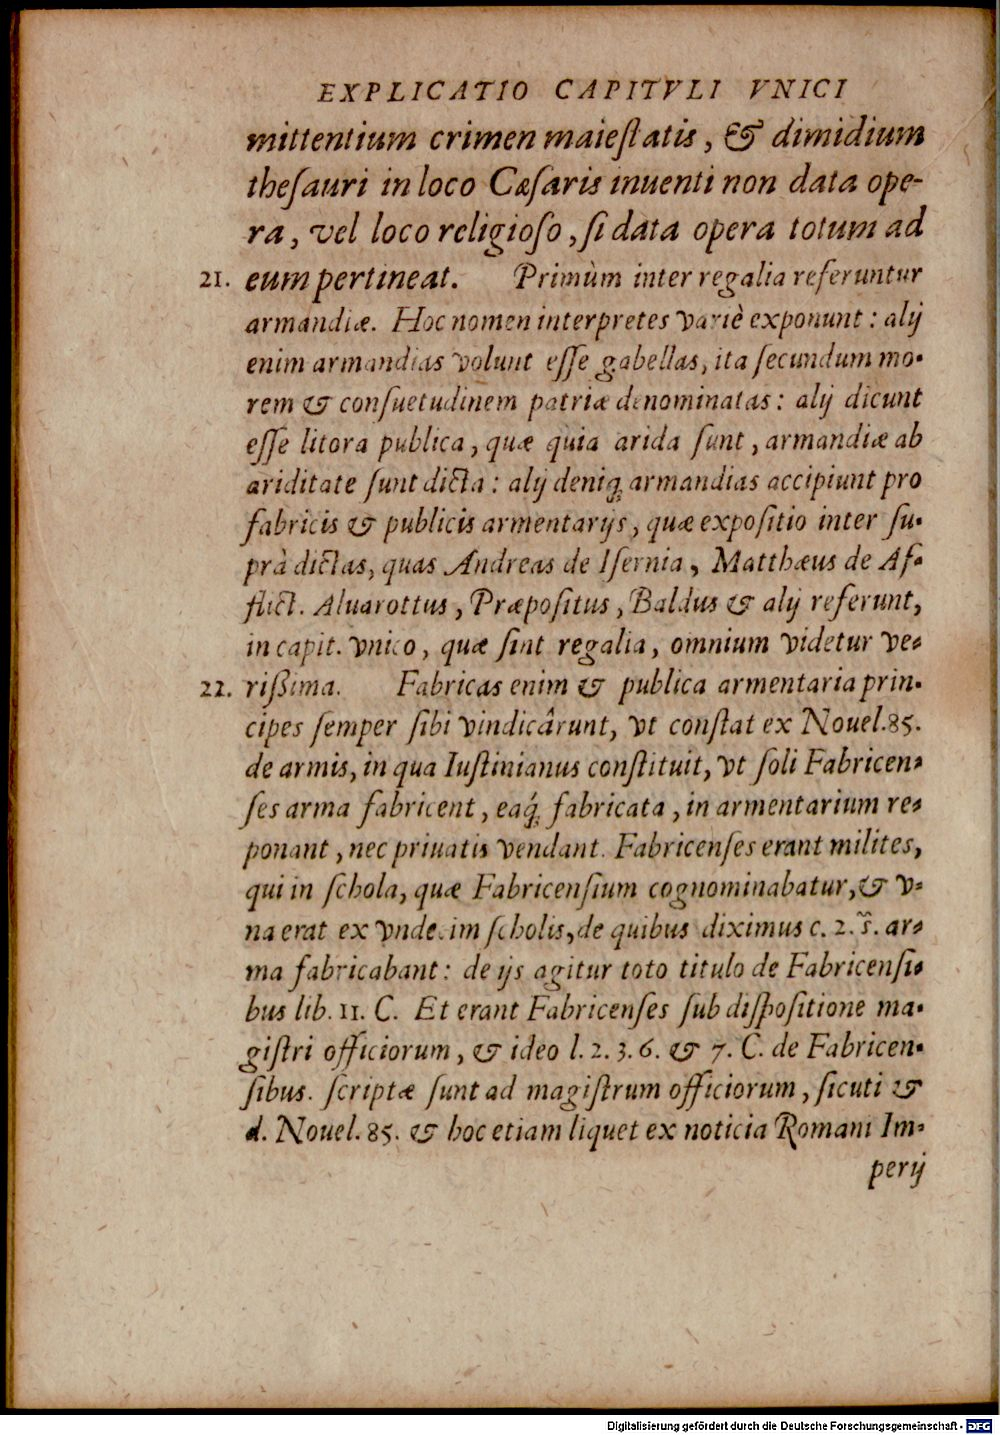 EXPLICATIO CAPITVLI VNICI
mittentium crimen maieſtatis, & dimidium
theſauri in loco Cæſaris inuenti non data ope-
ra, vel loco religioſo, ſi data opera totum ad
21. eum pertineat. Primùm inter regalia referuntur
armandiæ. Hoc nomen interpretes variè exponunt: alij
enim armandias volunt eſſe gabellas, ita ſecundum mo-
rem & conſuetudinem patriæ denominatas: alij dicunt
eſſe litora publica, quæ quia arida ſunt, armandiæ ab
ariditate ſunt dicta: alij deniq; armandias accipiunt pro
fabricis & publicis armentarijs, quæ expoſitio inter ſu-
prà dictas, quas Andreas de Iſernia, Matthæus de Af-
flict. Aluarottus, Præpoſitus, Baldus & alij referunt,
in capit. vnico, quæ ſint regalia, omnium videtur ve-
22. rißima. Fabricas enim & publica armentaria prin-
cipes ſemper ſibi vindicârunt, vt conſtat ex Nouel. 85.
de armis, in qua Iuſtinianus conſtituit, vt ſoli Fabricen-
ſes arma fabricent, eaq́; fabricata, in armentarium re-
ponant, nec priuatis vendant. Fabricenſes erant milites,
qui in ſchola, quæ Fabricenſium cognominabatur, & v-
na erat ex vndecim ſcholis, de quibus diximus c. 2. s̃. ar-
ma fabricabant: de ijs agitur toto titulo de Fabricenſi-
bus lib. 11. C. Et erant Fabricenſes ſub diſpoſitione ma-
giſtri officiorum, & ideo l. 2. 3. 6. & 7. C. de Fabricen-
ſibus. ſcriptæ ſunt ad magiſtrum officiorum, ſicuti &
d. Nouel. 85. & hoc etiam liquet ex noticia Romani Im-
perij
Digitalisierung gefördert durch die Deutsche Forschungsgemeinschaft - DFG